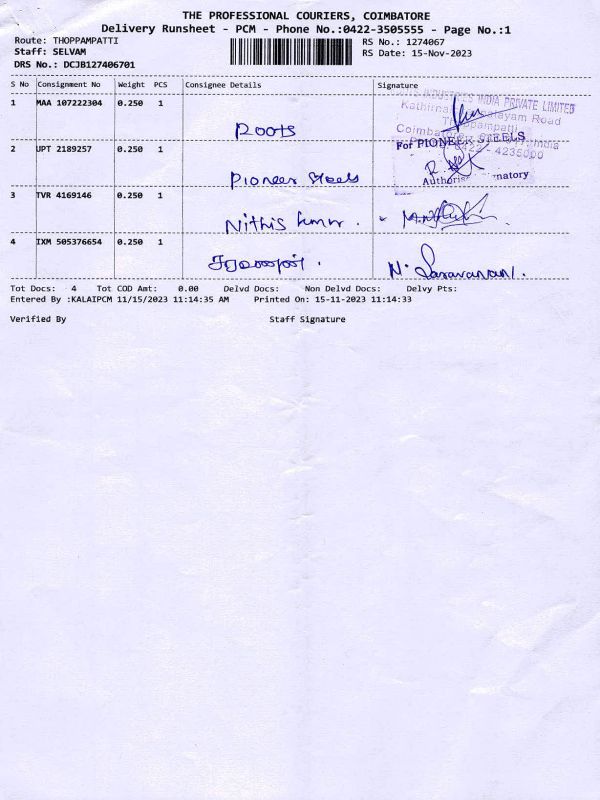 THE PROFESSIONAL COURIERS, COIMBATORE
Delivery Runsheet - PCM - Phone No.:0422-3505555 - Page No.:1
Route: THOPPAMPATTI
RS No.: 1274067
Staff: SELVAM
RS Date: 15-Nov-2023
DRS No.: DCJB127406701
S No Consignment No Weight PCS Consignee Details Signature
1 MAA 107222304 0.250 1 Roots
INDUSTRIES INDIA PRIVATE LIMITED
Road
Coimbatore
2 UPT 2189257 0.250 1 Pioneer Steels
For PIONEER STEELS
0422 - 4235000
3 TVR 4169146 0.250 1 Nithis kumar.
4 IXM 505376654 0.250 1 சரவணன். N. Saravanan.
Tot Docs: 4 Tot COD Amt: 0.00 Delvd Docs: Non Delvd Docs: Delvy Pts:
Entered By :KALAIPCM 11/15/2023 11:14:35 AM Printed On: 15-11-2023 11:14:33
Verified By Staff Signature